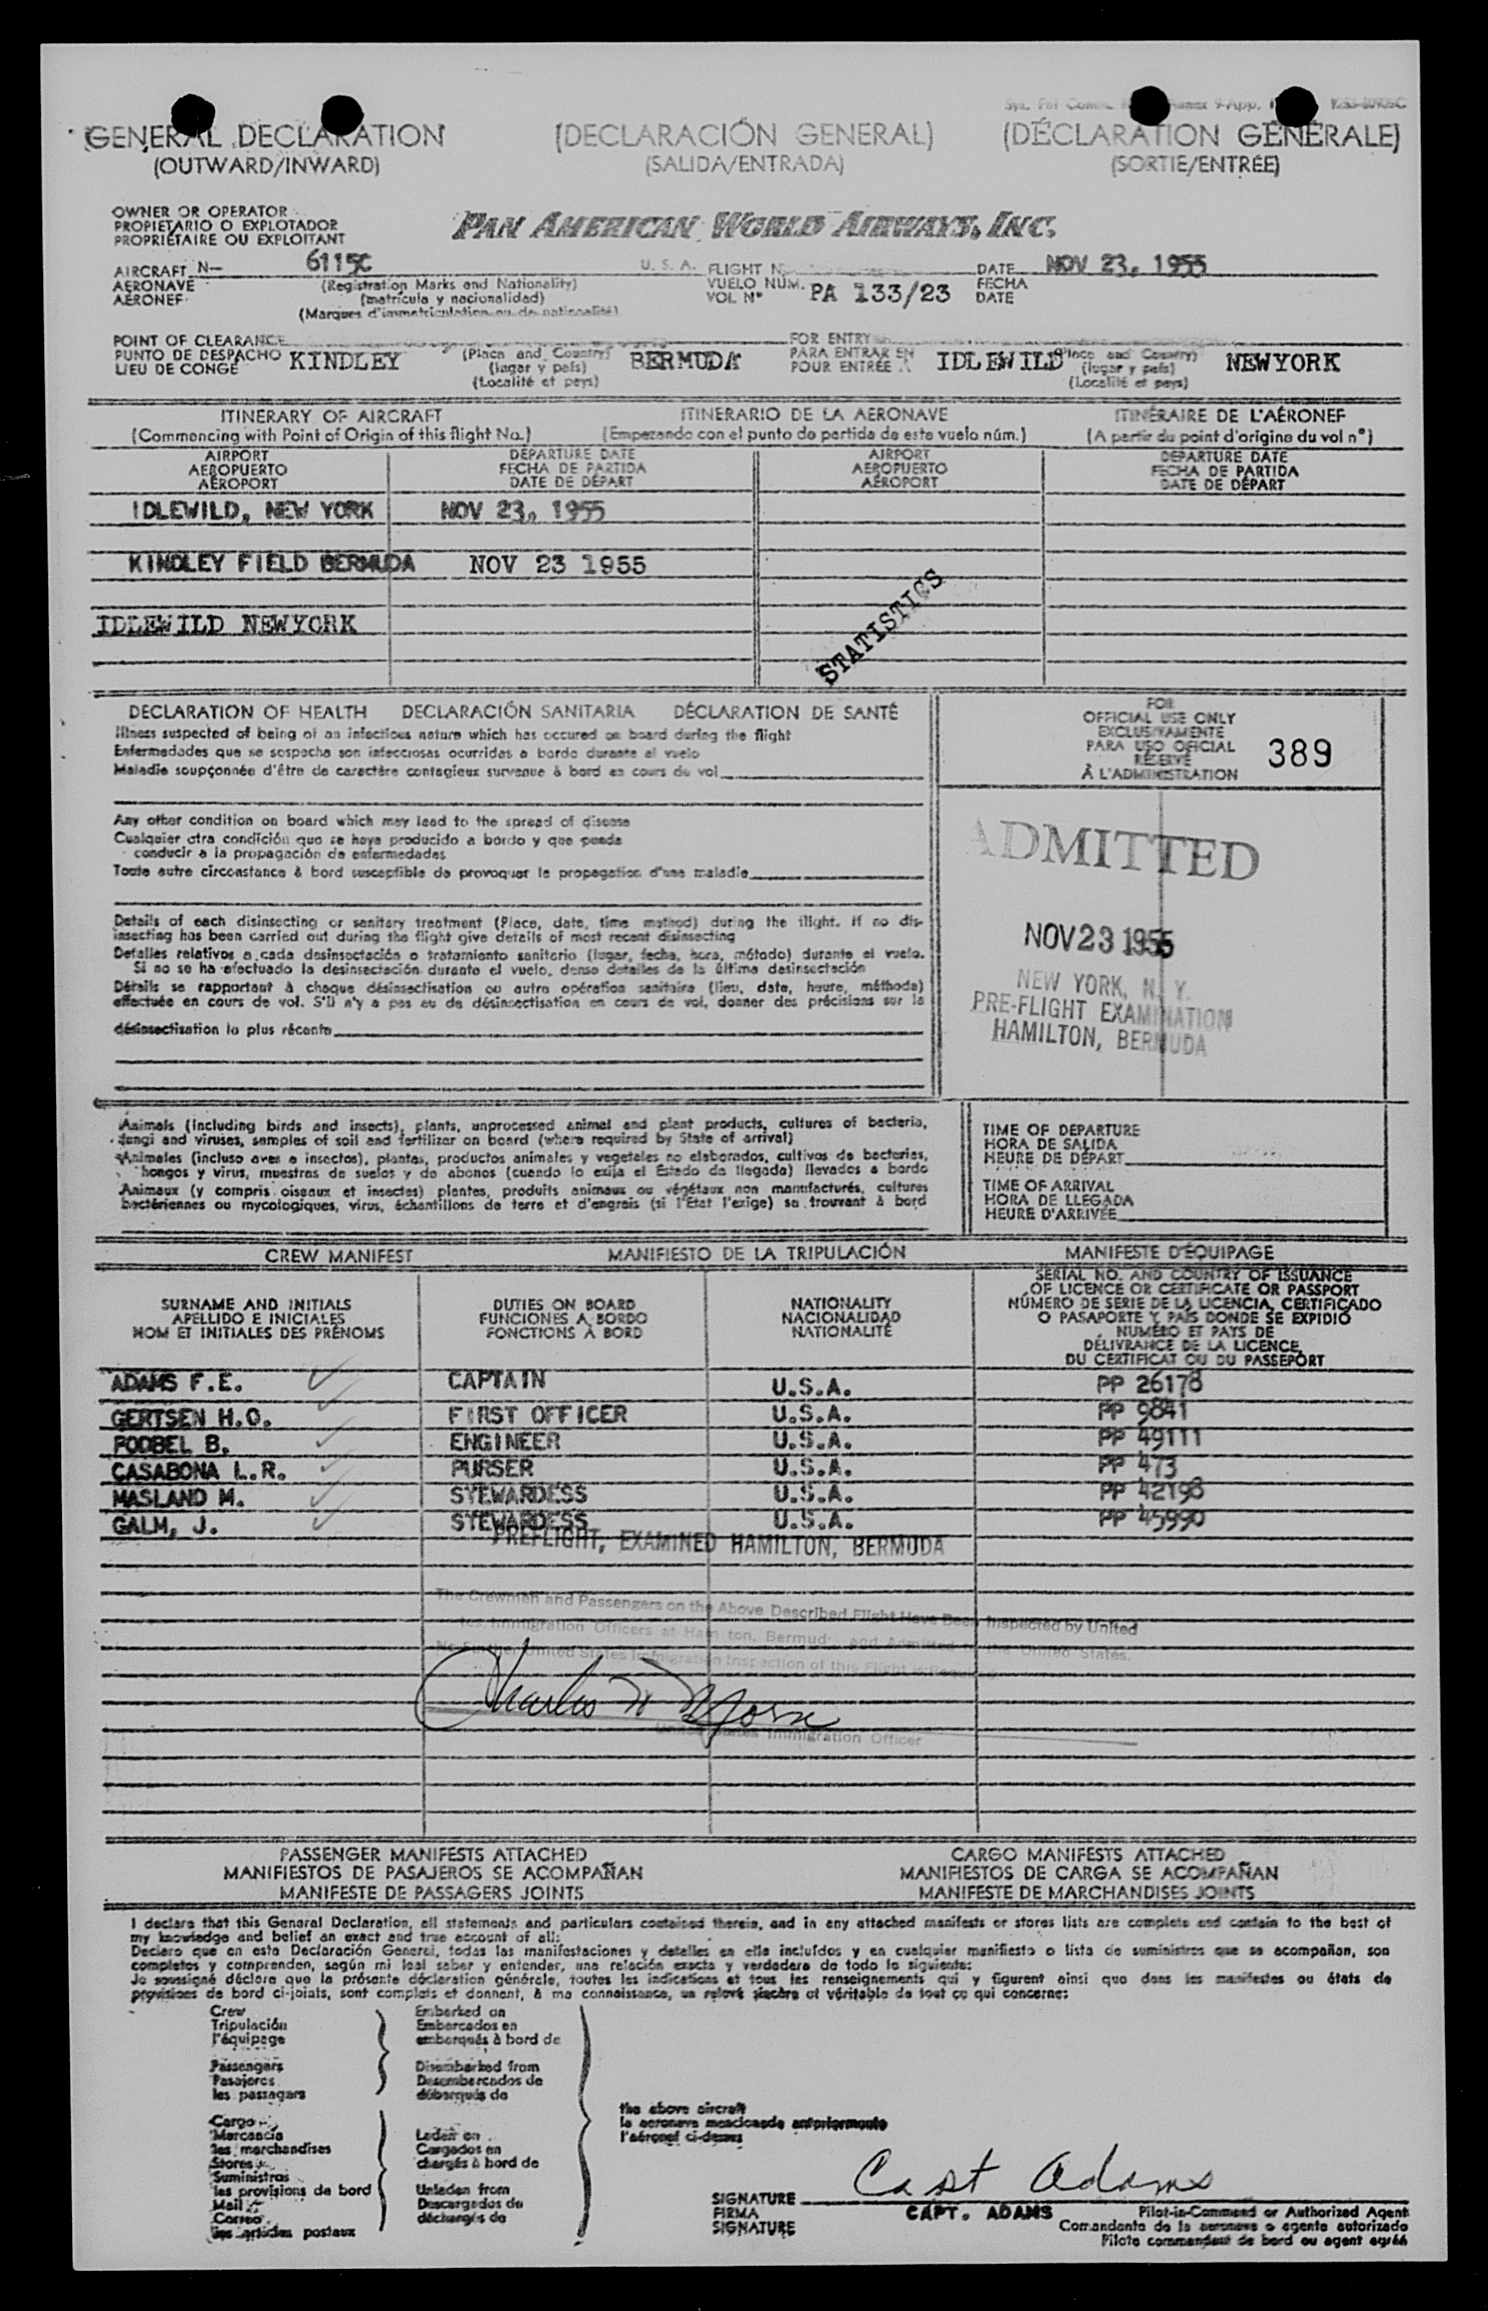 GENERAL DECLARATION (DECLARACIÓN GENERAL) (DÉCLARATION GÉNÉRALE)
(OUTWARD/INWARD) (SALIDA/ENTRADA) (SORTIE/ENTRÉE)
OWNER OR OPERATOR
PROPIETARIO O EXPLOTADOR
PROPRIÉTAIRE OU EXPLOITANT
PAN AMERICAN WORLD AIRWAYS, INC.
AIRCRAFT N— 6115C U. S. A. FLIGHT DATE NOV 23, 1955
AERONAVE (Registration Marks and Nationality) VUELO NUM. PA 133/23 FECHA
AÉRONEF (matrícula y nacionalidad) VOL N° DATE
(Marques d'immatriculation ou de nationalité)
POINT OF CLEARANCE FOR ENTRY
PUNTO DE DESPACHO KINDLEY (Place and Country) BERMUDA PARA ENTRAR EN IDLEWILD (Place and Country) NEWYORK
LIEU DE CONGÉ (lugar y país) POUR ENTRÉE A (lugar y país)
(Localité et pays) (Localité et pays)
ITINERARY OF AIRCRAFT ITINERARIO DE LA AERONAVE ITINÉRAIRE DE L'AÉRONEF
(Commencing with Point of Origin of this flight No.) (Empezando con el punto de partida de este vuelo núm.) (A partir du point d'origine du vol n°)
AIRPORT DEPARTURE DATE AIRPORT DEPARTURE DATE
AEROPUERTO FECHA DE PARTIDA AEROPUERTO FECHA DE PARTIDA
AÉROPORT DATE DE DÉPART AÉROPORT DATE DE DÉPART
IDLEWILD, NEW YORK NOV 23, 1955
KINDLEY FIELD BERMUDA NOV 23 1955
STATISTICS
IDLEWILD NEWYORK
DECLARATION OF HEALTH DECLARACIÓN SANITARIA DÉCLARATION DE SANTÉ
Illness suspected of being of an infectious nature which has occured on board during the flight
Enfermedades que se sospecha son infecciosas ocurridas a bordo durante el vuelo
Maladie soupçonnée d'être de caractère contagieux survenue à bord en cours de vol
FOR
OFFICIAL USE ONLY
EXCLUSIVAMENTE
PARA USO OFICIAL
RÉSERVÉ
À L'ADMINISTRATION
389
Any other condition on board which may lead to the spread of disease
Cualquier otra condición que se haya producido a bordo y que pueda
conducir a la propagación de enfermedades
Toute autre circonstance à bord susceptible de provoquer la propagation d'une maladie
ADMITTED
NOV 23 1955
NEW YORK, N. Y.
PRE-FLIGHT EXAMINATION
HAMILTON, BERMUDA
Details of each disinsecting or sanitary treatment (Place, date, time method) during the flight. If no dis-
insecting has been carried out during the flight give details of most recent disinsecting
Detalles relativos a cada desinsectación o tratamiento sanitario (lugar, fecha, hora, método) durante el vuelo.
Si no se ha efectuado la desinsectación durante el vuelo, dense detalles de la última desinsectación
Détails se rapportant à chaque désinsectisation ou autre opération sanitaire (lieu, date, heure, méthode)
effectuée en cours de vol. S'il n'y a pas eu de désinsectisation en cours de vol, donner des précisions sur la
désinsectisation la plus récente
Animals (including birds and insects), plants, unprocessed animal and plant products, cultures of bacteria,
fungi and viruses, samples of soil and fertilizer on board (where required by State of arrival)
Animales (incluso aves e insectos), plantas, productos animales y vegetales no elaborados, cultivos de bacterias,
hongos y virus, muestras de suelos y de abonos (cuando lo exija el Estado de llegada) llevados a bordo
Animaux (y compris oiseaux et insectes) plantes, produits animaux ou végétaux non manufacturés, cultures
bactériennes ou mycologiques, virus, échantillons de terre et d'engrais (si l'État l'exige) se trouvant à bord
TIME OF DEPARTURE
HORA DE SALIDA
HEURE DE DÉPART
TIME OF ARRIVAL
HORA DE LLEGADA
HEURE D'ARRIVÉE
CREW MANIFEST MANIFIESTO DE LA TRIPULACIÓN MANIFESTE D'ÉQUIPAGE
SURNAME AND INITIALS
APELLIDO E INICIALES
NOM ET INITIALES DES PRÉNOMS
DUTIES ON BOARD
FUNCIONES A BORDO
FONCTIONS À BORD
NATIONALITY
NACIONALIDAD
NATIONALITÉ
SERIAL NO. AND COUNTRY OF ISSUANCE
OF LICENCE OR CERTIFICATE OR PASSPORT
NÚMERO DE SERIE DE LA LICENCIA, CERTIFICADO
O PASAPORTE Y PAÍS DONDE SE EXPIDIÓ
NUMÉRO ET PAYS DE
DÉLIVRANCE DE LA LICENCE,
DU CERTIFICAT OU DU PASSEPORT
ADAMS F.E. CAPTAIN U.S.A. PP 26178
GERTSEN H.O. FIRST OFFICER U.S.A. PP 9841
PODBEL B. ENGINEER U.S.A. PP 49111
CASABONA L.R. PURSER U.S.A. PP 473
MASLAND M. STEWARDESS U.S.A. PP 42198
GALM, J. STEWARDESS U.S.A. PP 45990
PREFLIGHT, EXAMINED HAMILTON, BERMUDA
The Crewman and Passengers on the Above Described Flight Have Been Inspected by United
Immigration Officers at Hamilton, Bermuda, and Admitted to the United States.
No Further United States Immigration Inspection of this Flight is Required
Immigration Officer
PASSENGER MANIFESTS ATTACHED CARGO MANIFESTS ATTACHED
MANIFIESTOS DE PASAJEROS SE ACOMPAÑAN MANIFIESTOS DE CARGA SE ACOMPAÑAN
MANIFESTE DE PASSAGERS JOINTS MANIFESTE DE MARCHANDISES JOINTS
I declare that this General Declaration, all statements and particulars contained therein, and in any attached manifests or stores lists are complete and contain to the best of
my knowledge and belief an exact and true account of all:
Declaro que en esta Declaración General, todas las manifestaciones y detalles en ella incluídos y en cualquier manifiesto o lista de suministros que se acompañan, son
completos y comprenden, según mi leal saber y entender, una relación exacta y verdadera de todo lo siguiente:
Je soussigné déclare que la présente déclaration générale, toutes les indications et tous les renseignements qui y figurent ainsi que dans les manifestes ou états de
provisions de bord ci-joints, sont complets et donnent, à ma connaissance, un relevé sincère et véritable de tout ce qui concerne:
Crew Embarked on
Tripulación Embarcados en
l'équipage embarqués à bord de
Passengers Disembarked from
Pasajeros Desembarcados de
les passagers débarqués de
the above aircraft
la aeronave mencionada anteriormente
l'aéronef ci-dessus
Cargo
Mercancía Laden on
les marchandises Cargados en
Stores chargés à bord de
Suministros
les provisions de bord Unladen from
Mail Descargados de
Correo déchargés de
les articles postaux
SIGNATURE Capt Adams
FIRMA CAPT. ADAMS Pilot-in-Command or Authorized Agent
SIGNATURE Comandante de la aeronave o agente autorizado
Pilote commandant de bord ou agent agréé